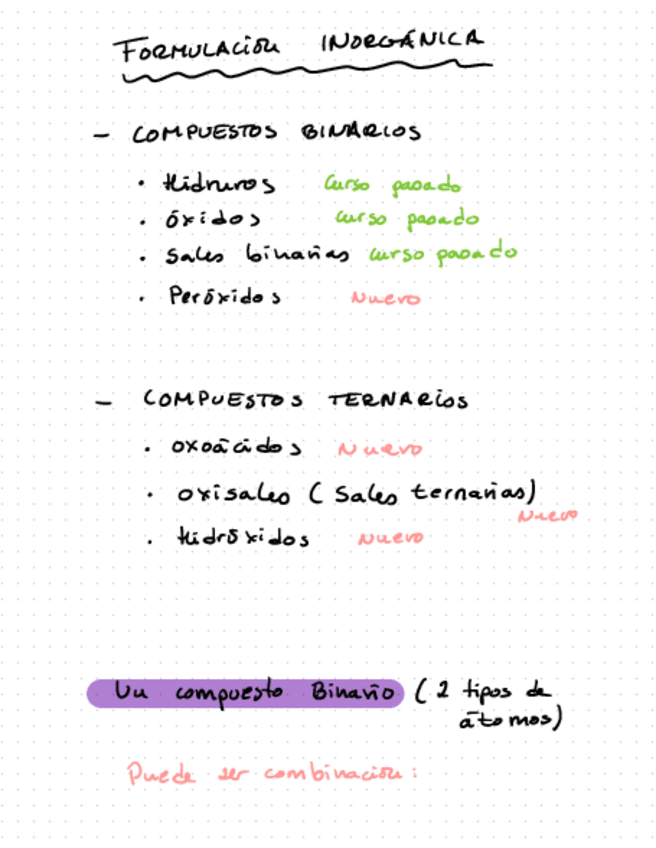 FORMULACIÓN INORGÁNICA
- COMPUESTOS BINARIOS
· Hidruros Curso pasado
· óxidos curso pasado
· Sales binarias curso pasado
· Peróxidos Nuevo
- COMPUESTOS TERNARIOS
· oxoácidos Nuevo
· oxisales (Sales ternarias)
Nuevo
· Hidróxidos Nuevo
Un compuesto Binario (2 tipos de
átomos)
Puede ser combinación: